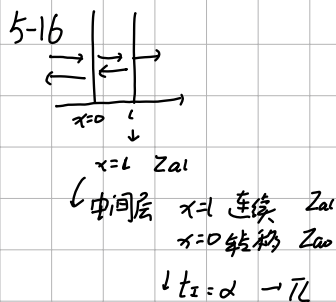 5-16
x=0 l
↓
x=l Zal
↙中间层 x=l 连续 Zal
x=0 转移 Zao
↓ t_I=α →